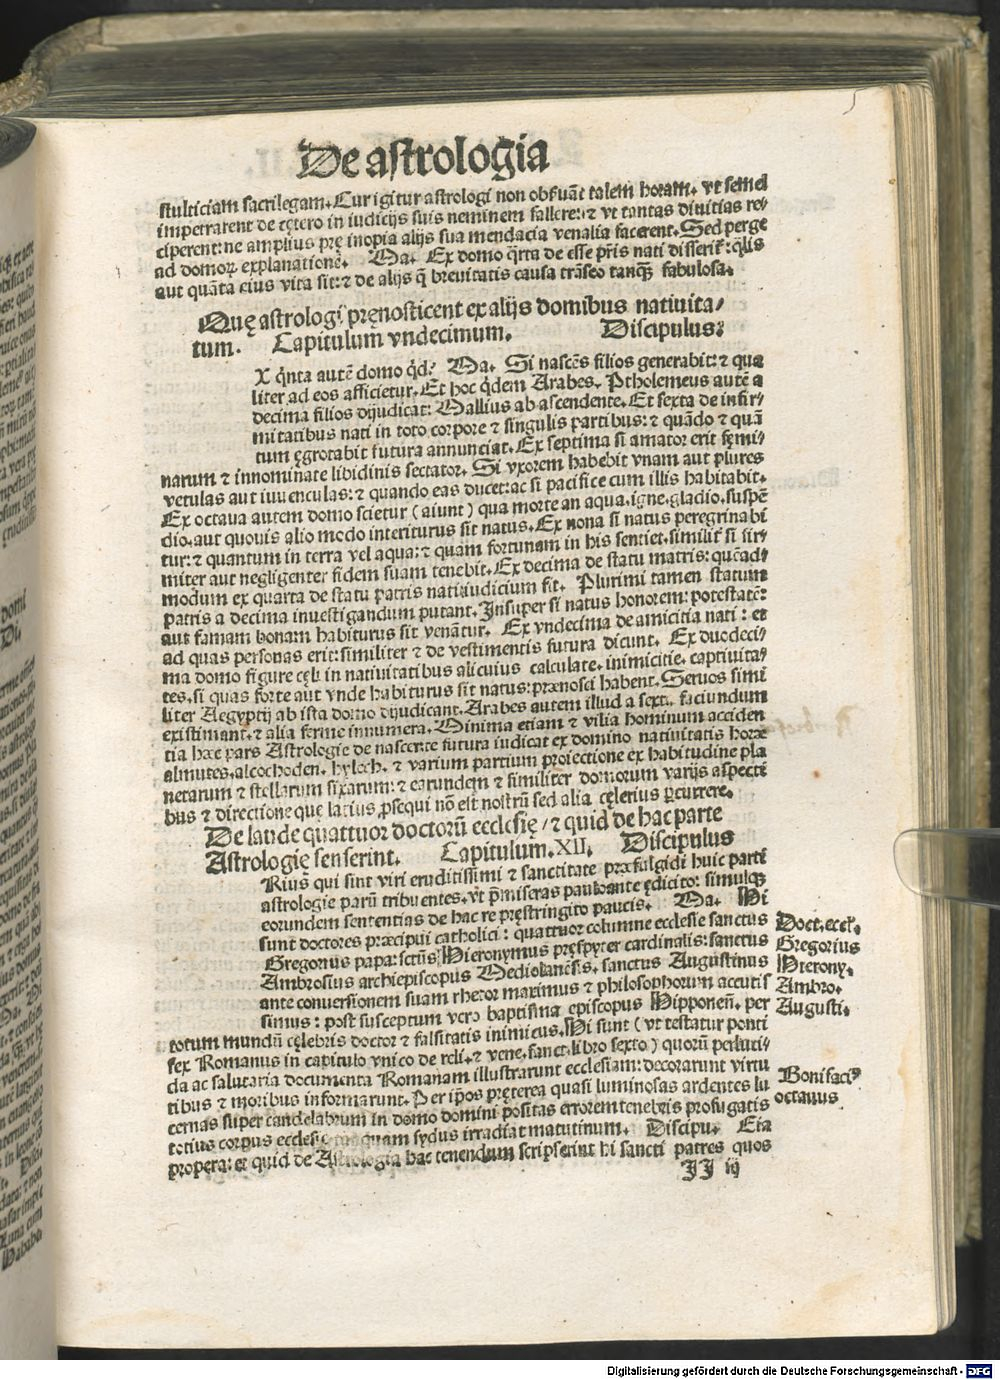 De astrologia
stulticiam sacrilegam. Cur igitur astrologi non obseruāt talem horam. vt semel
impetrarent de cętero in iudicijs suis neminem fallere: ⁊ vt tantas diuitias re⸗
ciperent: ne amplius prę inopia alijs sua mendacia venalia facerent. Sed perge
ad domoꝝ explanationē. Ma. Ex domo q̄rta de esse pr̄is nati disserit᷑: q̄lis
aut quāta eius vita sit: ⁊ de alijs q̄ breuitatis causa trāseo tanqꝫ fabulosa.
Quę astrologi pręnosticent ex alijs domibus natiuita⸗
tum. Capitulum vndecimum. Discipulus:
X q̄nta autē domo qd̄? Ma. Si nascēs filios generabit: ⁊ qua
liter ad eos afficietur. Et hoc q̄dem Arabes. Ptholemeus autē a
decima filios dijudicat: Mallius ab ascendente. Et sexta de infir⸗
mitatibus nati in toto corpore ⁊ singulis partibus: ⁊ quādo ⁊ quā
tum ęgrotabit futura annunciat. Ex septima si amator erit fęmi⸗
narum ⁊ innominate libidinis sectator. Si vxorem habebit vnam aut plures
vetulas aut iuuenculas: ⁊ quando eas ducet: ac si pacifice cum illis habitabit.
Ex octaua autem domo scietur (aiunt) qua morte an aqua. igne. gladio. suspē
dio. aut quouis alio modo interiturus sit natus. Ex nona si natus peregrinabi
tur: ⁊ quantum in terra vel aqua: ⁊ quam fortunam in his sentiet. similit᷑ si fir⸗
miter aut negligenter fidem suam tenebit. Ex decima de statu matris: quēad⸗
modum ex quarta de statu patris nati iudicium fit. Plurimi tamen statum
patris a decima inuestigandum putant. Insuper si natus honorem: potestatē:
aut famam bonam habiturus sit venātur. Ex vndecima de amicitia nati: et
ad quas personas erit: similiter ⁊ de vestimentis futura dicunt. Ex duodeci⸗
ma domo figure cęli in natiuitatibus alicuius calculate. inimicitie. captiuita⸗
tes. si quas forte aut vnde habiturus sit natus: prænosci habent. Seruos simi
liter Aegyptij ab ista domo dijudicant. Arabes autem illud a sexta faciundum
existimant. ⁊ alia ferme innumera. Minima etiam ⁊ vilia hominum acciden
tia hæc pars Astrologie de nascente futura iudicat ex domino natiuitatis horæ
almutes. alcochoden. hylech. ⁊ varium partium proiectione ex habitudine pla
netarum ⁊ stellarum fixarum: ⁊ earundem ⁊ similiter domorum varijs aspecti
bus ⁊ directione que latius ꝓsequi nō est nostrū sed alia cęlerius ꝑcurrere.
De laude quattuor doctorū ecclesię / ⁊ quid de hac parte
Astrologię senserint. Capitulum. XII. Discipulus
Rius qui sint viri eruditissimi ⁊ sanctitate præfulgidi huic parti
astrologie parū tribuentes. vt p̄miseras pauloante ędicito: simulqꝫ
eorundem sententias de hac re pręstringito paucis. Ma. Hi
sunt doctores præcipui catholici: quattuor columne ecclesie sanctus
Gregorius papa: sctūs Hieronymus pręsbyter cardinalis: sanctus
Ambrosius archiepiscopus Mediolanēsis. sanctus Augustinus
ante conuersionem suam rhetor maximus ⁊ philosophorum accutis
simus: post susceptum vero baptisma episcopus Hipponeñ. per
totum mundū cęlebris doctor ⁊ falsitatis inimicus. Hi sunt (vt testatur ponti
fex Romanus in capitulo vnico de reli. ⁊ vene. sanct. libro sexto) quorū perluci⸗
da ac salutaria documenta Romanam illustrarunt ecclesiam: decorarunt virtu
tibus ⁊ moribus informarunt. Per ip̄os pręterea quasi luminosas ardentes lu
cernas super candelabrum in domo domini positas errorem tenebris profugatis
totius corpus ecclesię tanquam sydus irradiat matutinum. Discipu. Eia
propera: et quid de Astrologia hac tenendum scripserint hi sancti patres quos
JJ iij
Doct. eccł.
Gregorius
Hierony.
Ambro.
Augusti.
Bonifaci⁹
octauus
Digitalisierung gefördert durch die Deutsche Forschungsgemeinschaft - DFG